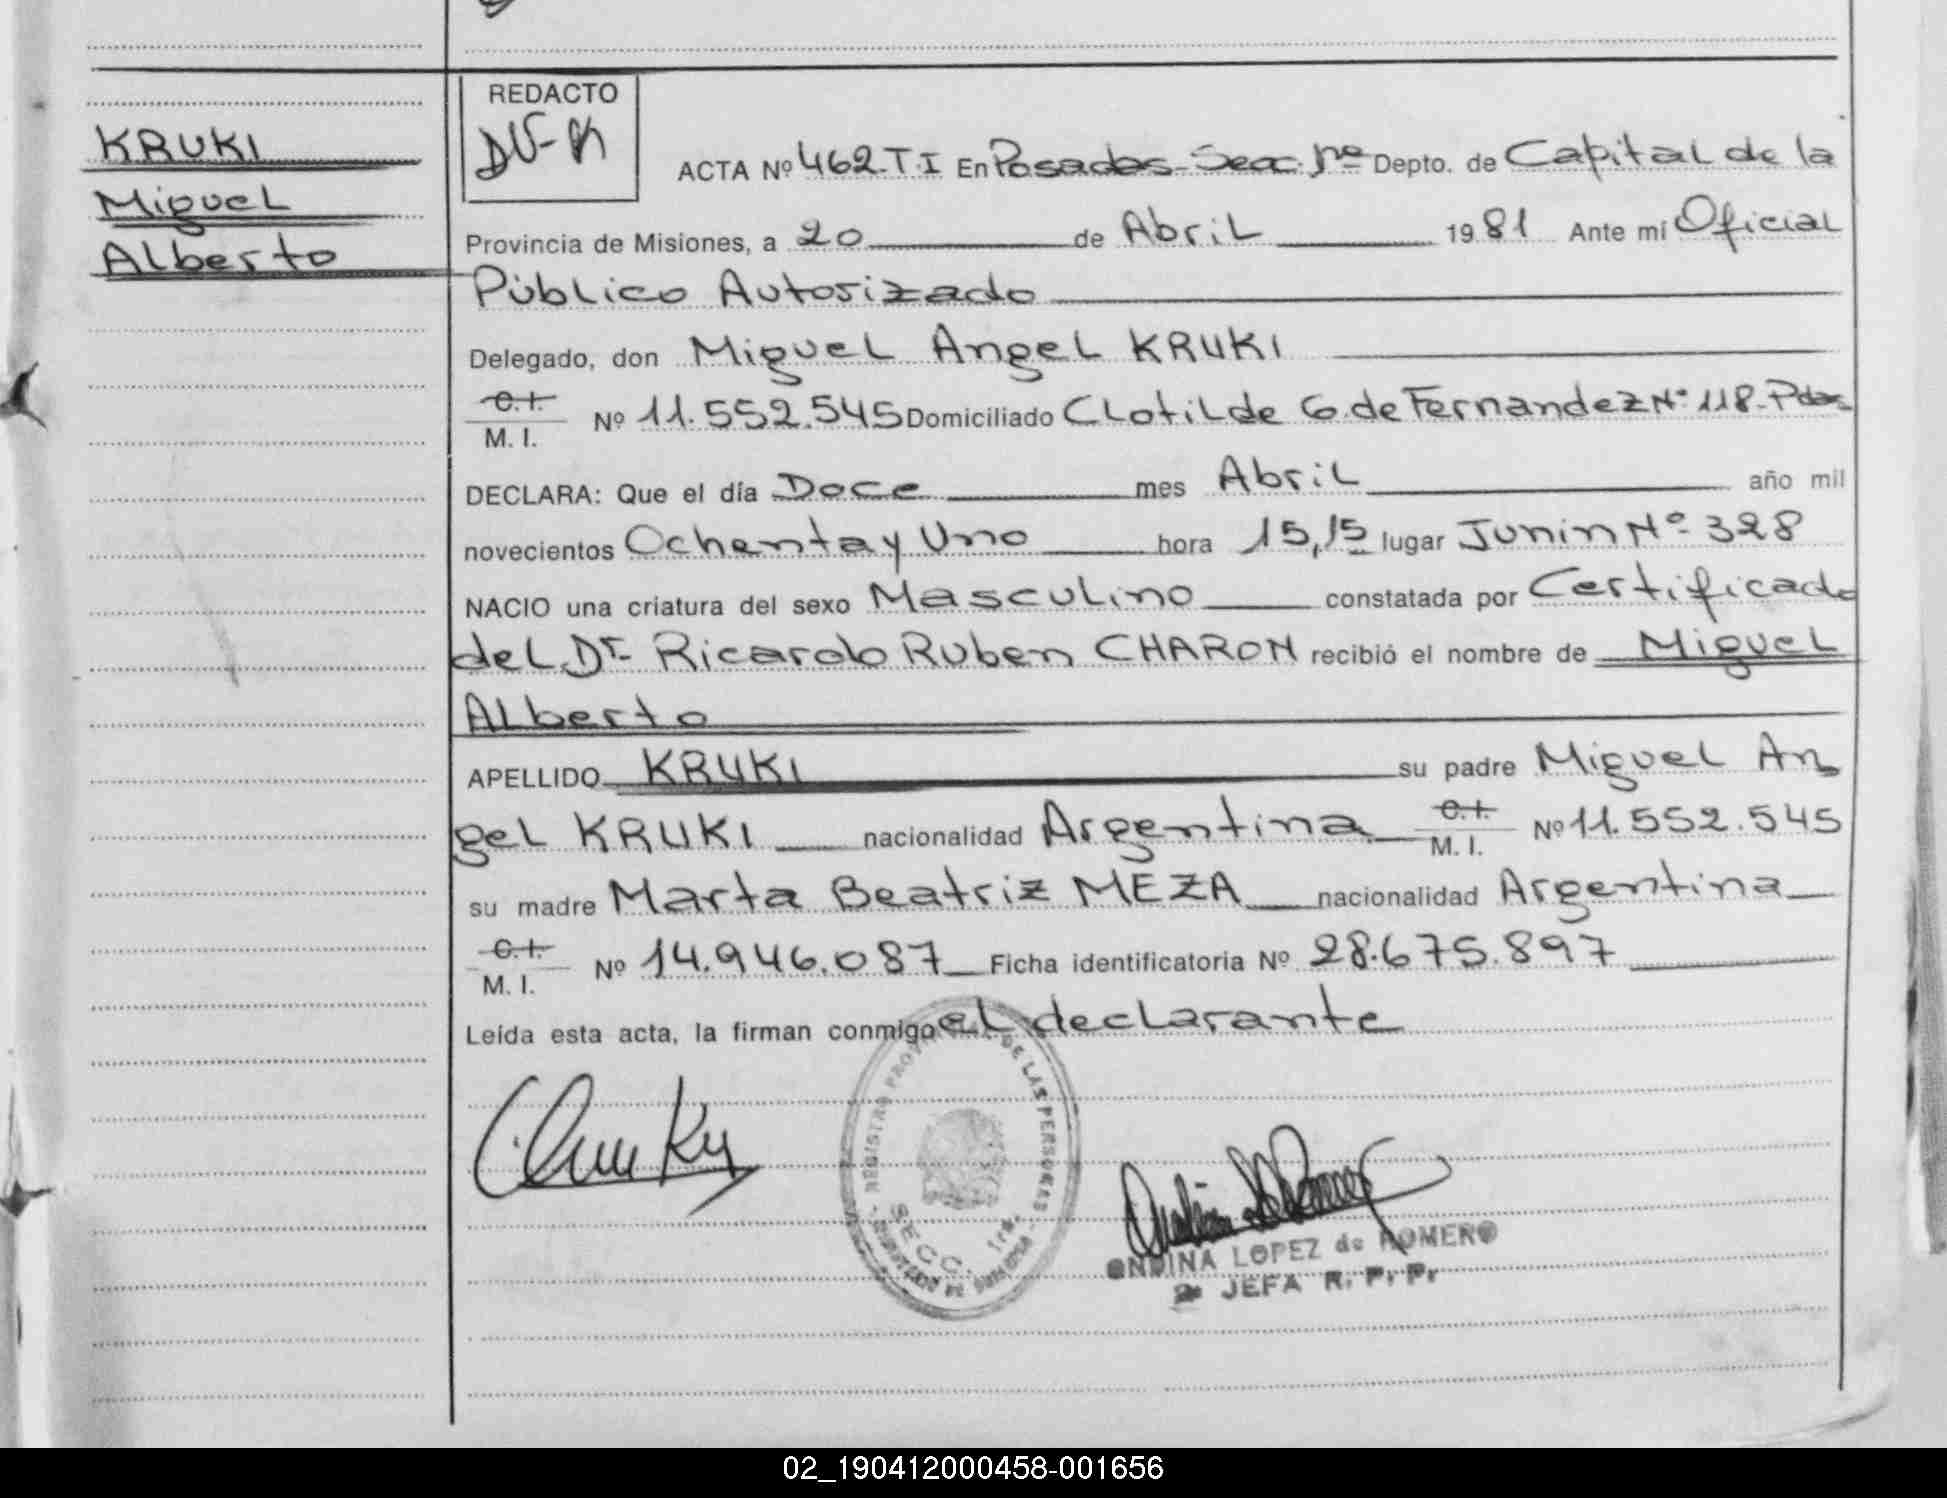 KRUKI
Miguel
Alberto
REDACTO
ACTA Nº 462.T.I En Posadas-Secc. 1ra Depto. de Capital de la
Provincia de Misiones, a 20 de Abril 1981 Ante mí Oficial
Público Autorizado
Delegado, don Miguel Angel KRUKI
C.I.
M. I. Nº 11.552.545 Domiciliado Clotilde G. de Fernandez Nº 118-Pdas
DECLARA: Que el día Doce mes Abril año mil
novecientos Ochenta y Uno hora 15,15 lugar Junin Nº 328
NACIO una criatura del sexo Masculino constatada por Certificado
del Dr Ricardo Ruben CHARON recibió el nombre de Miguel
Alberto
APELLIDO KRUKI su padre Miguel An
gel KRUKI nacionalidad Argentina C.I. M. I. Nº 11.552.545
su madre Marta Beatriz MEZA nacionalidad Argentina
C.I.
M. I. Nº 14.946.087 Ficha identificatoria Nº 28.675.897
Leída esta acta, la firman conmigo el declarante
REGISTRO DE LAS PERSONAS
SECC. 1ra.
ONDINA LOPEZ de ROMERO
JEFA R. P. P.
02_190412000458-001656